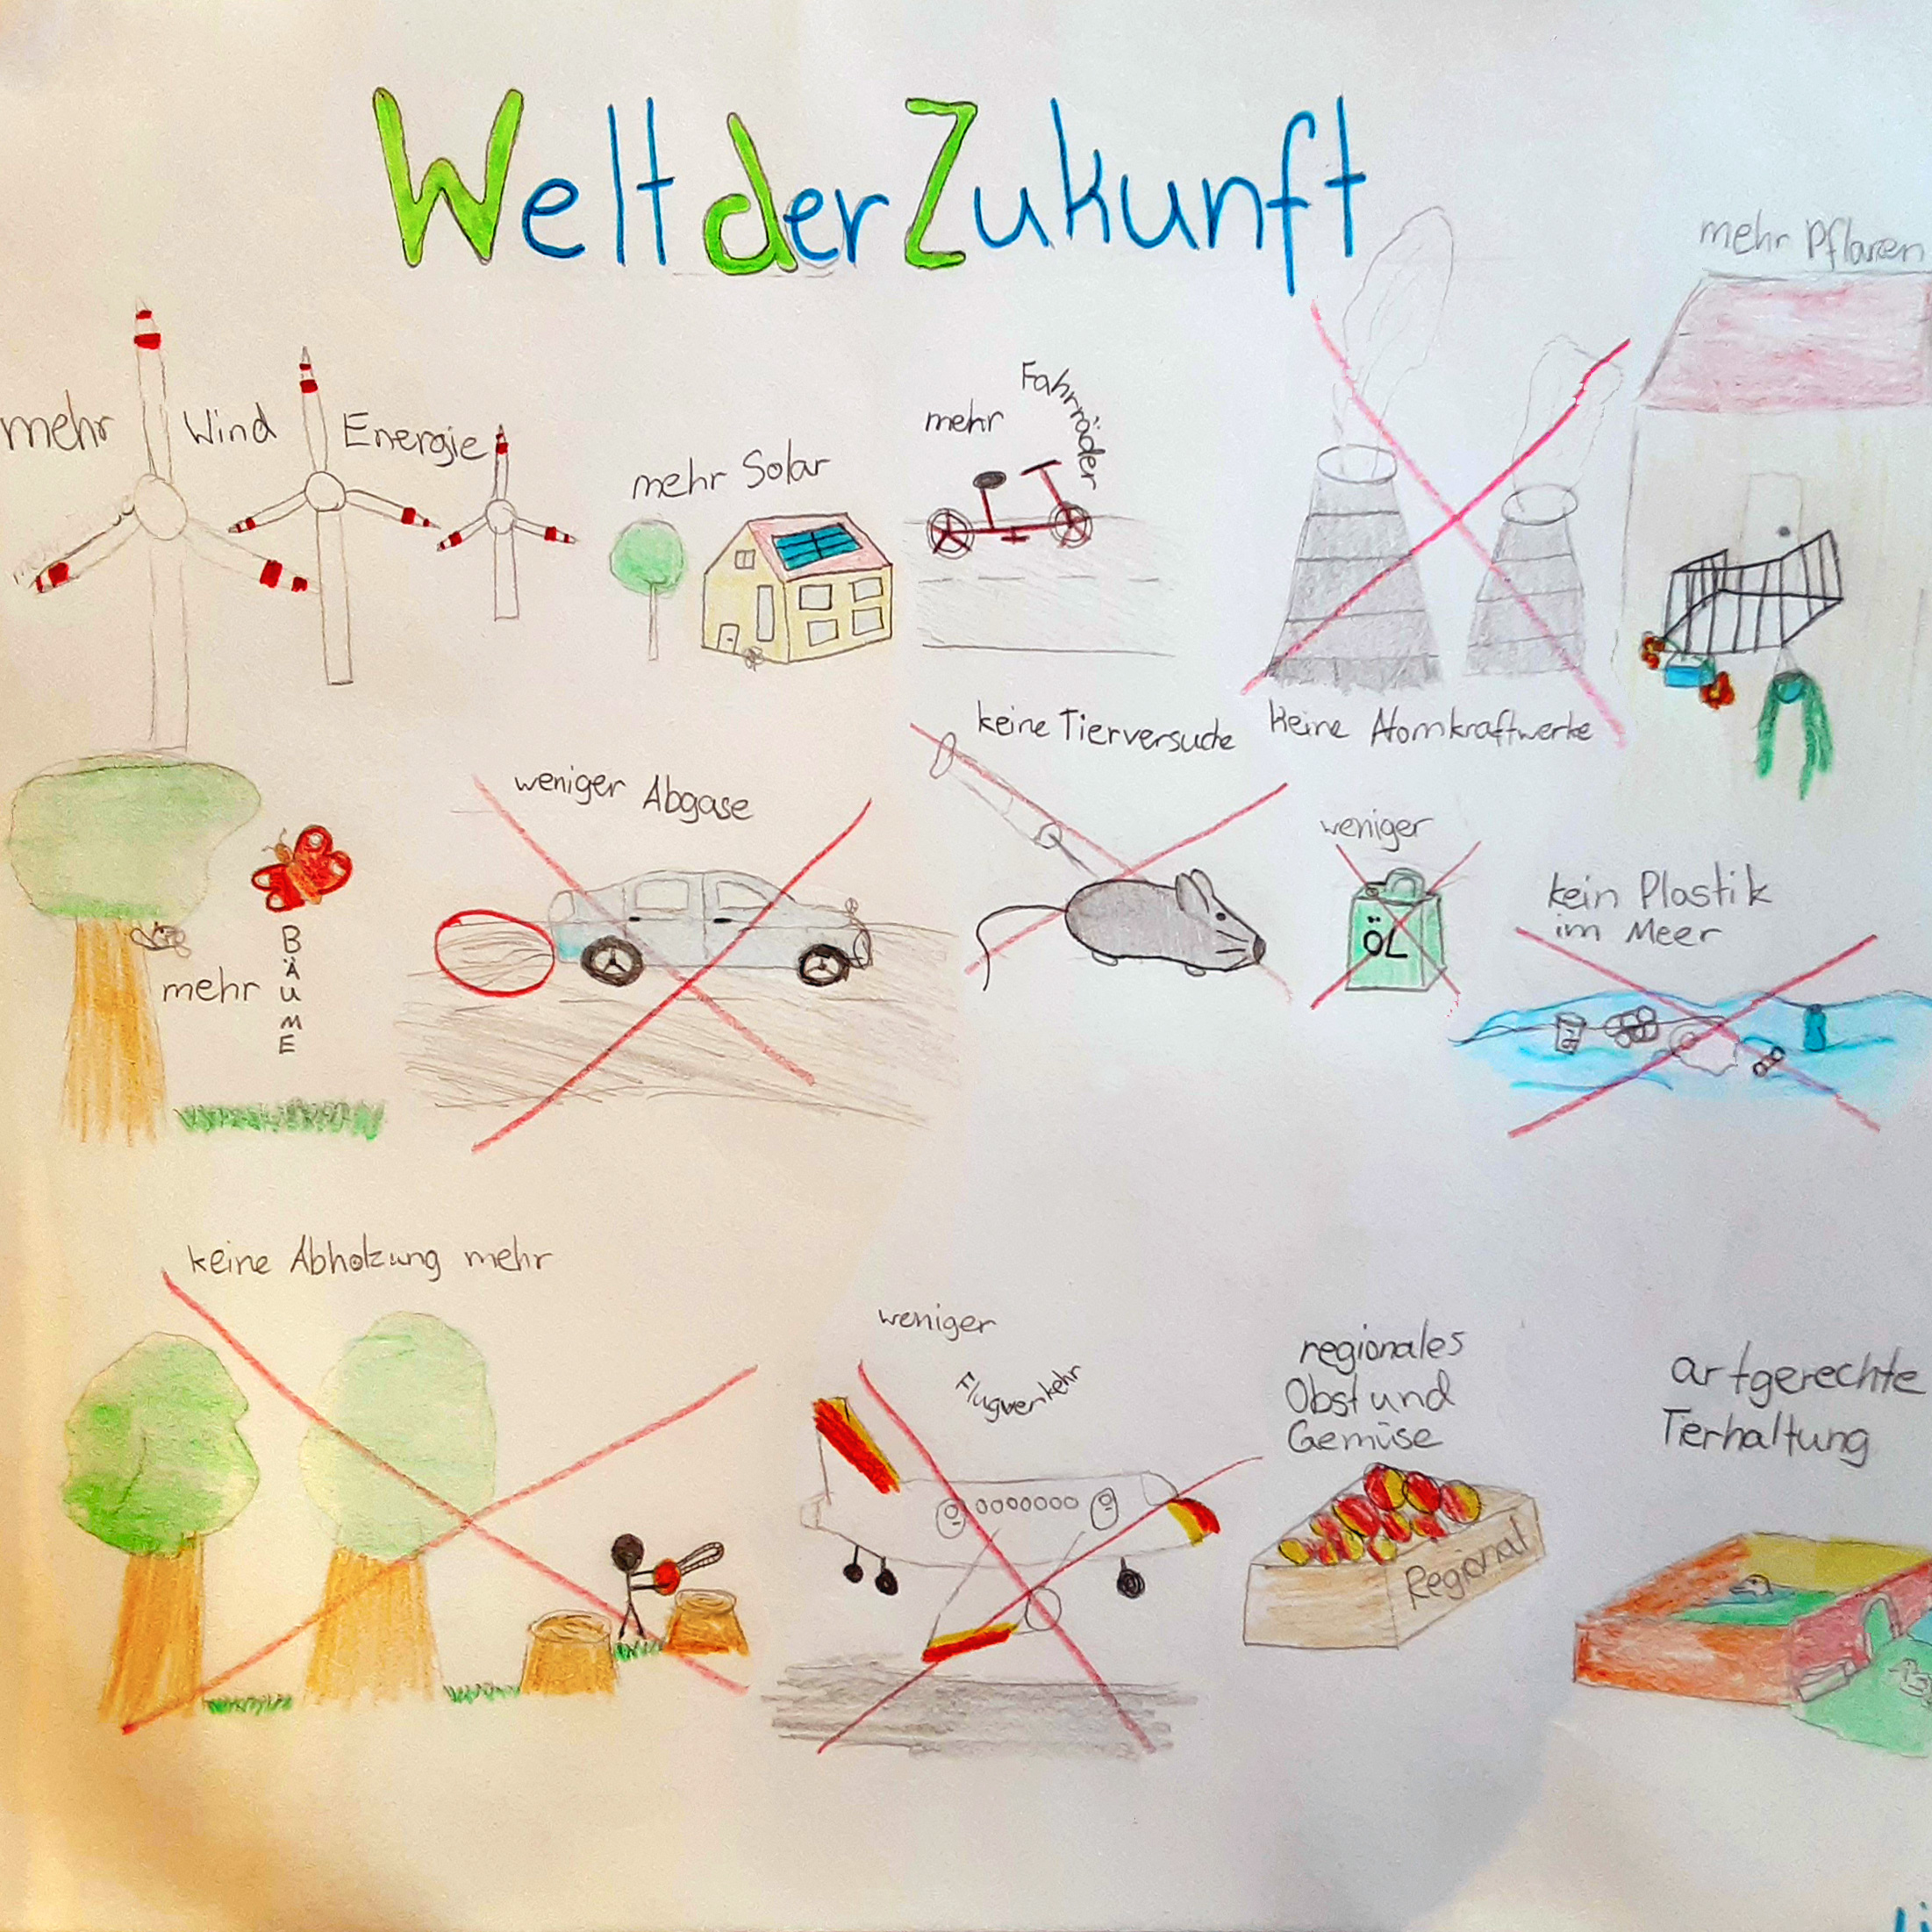 Welt der Zukunft
mehr Pflanzen
mehr Wind Energie
mehr Solar
mehr Fahrräder
keine Atomkraftwerke
keine Tierversuche
weniger Abgase
weniger
ÖL
kein Plastik
im Meer
mehr
BÄUME
keine Abholzung mehr
weniger
Flugverkehr
regionales
Obst und
Gemüse
Regional
artgerechte
Terhaltung